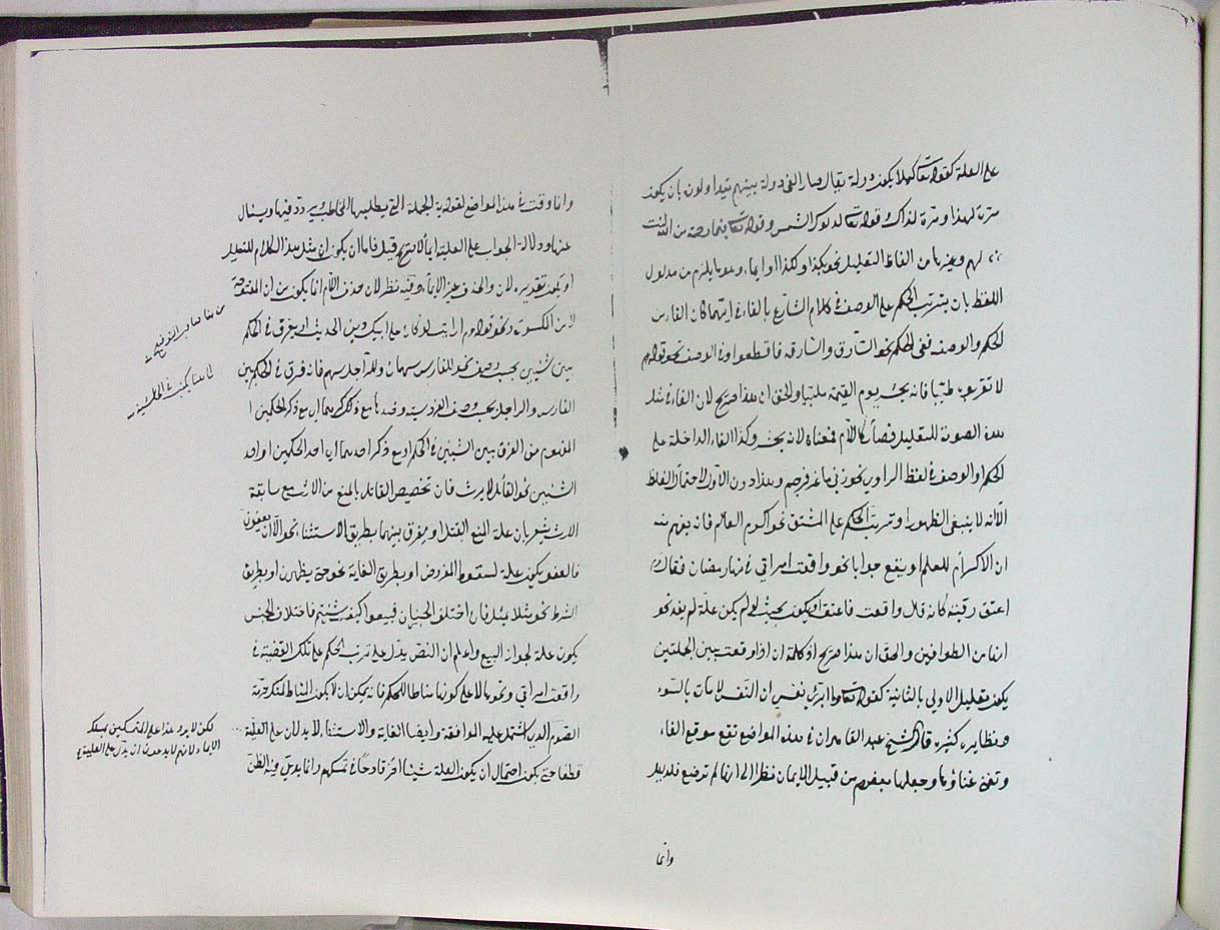 على العلة كقوله تعالى كيلا يكون دولة يقال صار الفئ دولة بينهم يتداولون بأن يكون
مرة لهذا ومرة لذاك وقوله تعالى لدلوك الشمس وقوله تعالى فبما رحمة من الله لنت
لهم وغيرها من الفاظ التعليل نحو بكذا وكذا او ايماء وهو ما يلزم من مدلول
اللفظ بان يترتب الحكم على الوصف في كلام الشارع بالفاء في ايهما كان الفاء من
الحكم والوصف ففي الحكم نحو السارق والسارقة فاقطعوا وفي الوصف نحو قوله
لا تقربوه طيبا فانه يحشر يوم القيمة ملبيا والحق ان هذا صريح لان الفاء في مثل
هذه الصورة للتعليل فصار كاللام فمعناه لانه يحشر وكذا الفاء الداخلة على
الحكم او الوصف في لفظ الراوي نحو زنى ماعز فرجم وهذا دون الاول لاحتمال الغلط
الا انه لا ينبغي الظهور او ترتب الحكم على المشتق نحو اكرم العالم فانه يفهم منه
ان الاكرام للعلم او يقع جوابا نحو واقعت امرأتي في نهار رمضان فقال
اعتق رقبة كانه قال واقعت فاعتق او يكون بحيث لو لم يكن علة لم يفد نحو
انها من الطوافين والحق ان هذا صريح اذ كلمة ان اذا وقعت بين الجملتين
يكون تعليل الاولى بالثانية كقوله تعالى وما ابرئ نفسي ان النفس لامارة بالسوء
ونظايره كثيرة قال الشيخ عبد القاهر ان في هذه المواضع تقع موقع الفاء
وتغني غناؤها وجعلها بعضهم من قبيل الايماء نظرا الى انها لم توضع للتعليل
وانما
وانما وقعت في هذه المواضع لتقوية الجملة التي يطلبها المخاطب ويتردد فيها ويسأل
عنها ودلالة الجواب على العلية ايماء لا صريح قيل فاما ان يكون ان مثل هذا الكلام للتعليل
او يكون تقديره لان والحذف غير الايماء وفيه نظر لان حذف اللام انما يكون من ان المفتوحة
لا من المكسورة ونحو قوله ارايت لو كان على ابيك دين الحديث او يفرق في الحكم
بين شيئين بحسب وصف نحو للفارس سهمان وللراجل سهم فانه فرق في الحكم بين
الفارس والراجل بحسب وصف الفروسية وضدها مع ذكرهما اي مع ذكر الحكمين
المفهوم من الفرق بين الشيئين في الحكم او مع ذكر احدهما اي احد الحكمين او احد
الشيئين نحو القاتل لا يرث فان تخصيص القاتل بالمنع من الارث مع سابقة
الارث يشعر بان علة المنع القتل او يفرق بينهما بطريق الاستثناء نحو الا ان يعفون
فالعفو يكون علة لسقوط المفروض او بطريق الغاية نحو حتى يطهرن او بطريق
الشرط نحو مثلا بمثل فان اختلف الجنسان فبيعوا كيف شئتم فاختلاف الجنس
يكون علة لجواز البيع واعلم ان النص يدل على ترتب الحكم على تلك القضية في
واقعت امرأتي ونحوه لا على كونها مناطا للحكم فانه يمكن ان لا يكون المناط هتك حرمة
الصوم الذي يشتمل عليه المواقعة وايضا الغاية والاستثناء لا يدلان على العلية
قطعا حتى يكون احتمال ان يكون العلة شيئا آخر قادحا في تمسكهم وانما يدعى فيه الظن
لكن لا يرد هذا على المتمسكين بمسلك